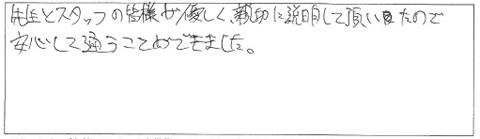 先生とスタッフの皆様が優しく、親切に説明して頂いたので
安心して通うことができました。